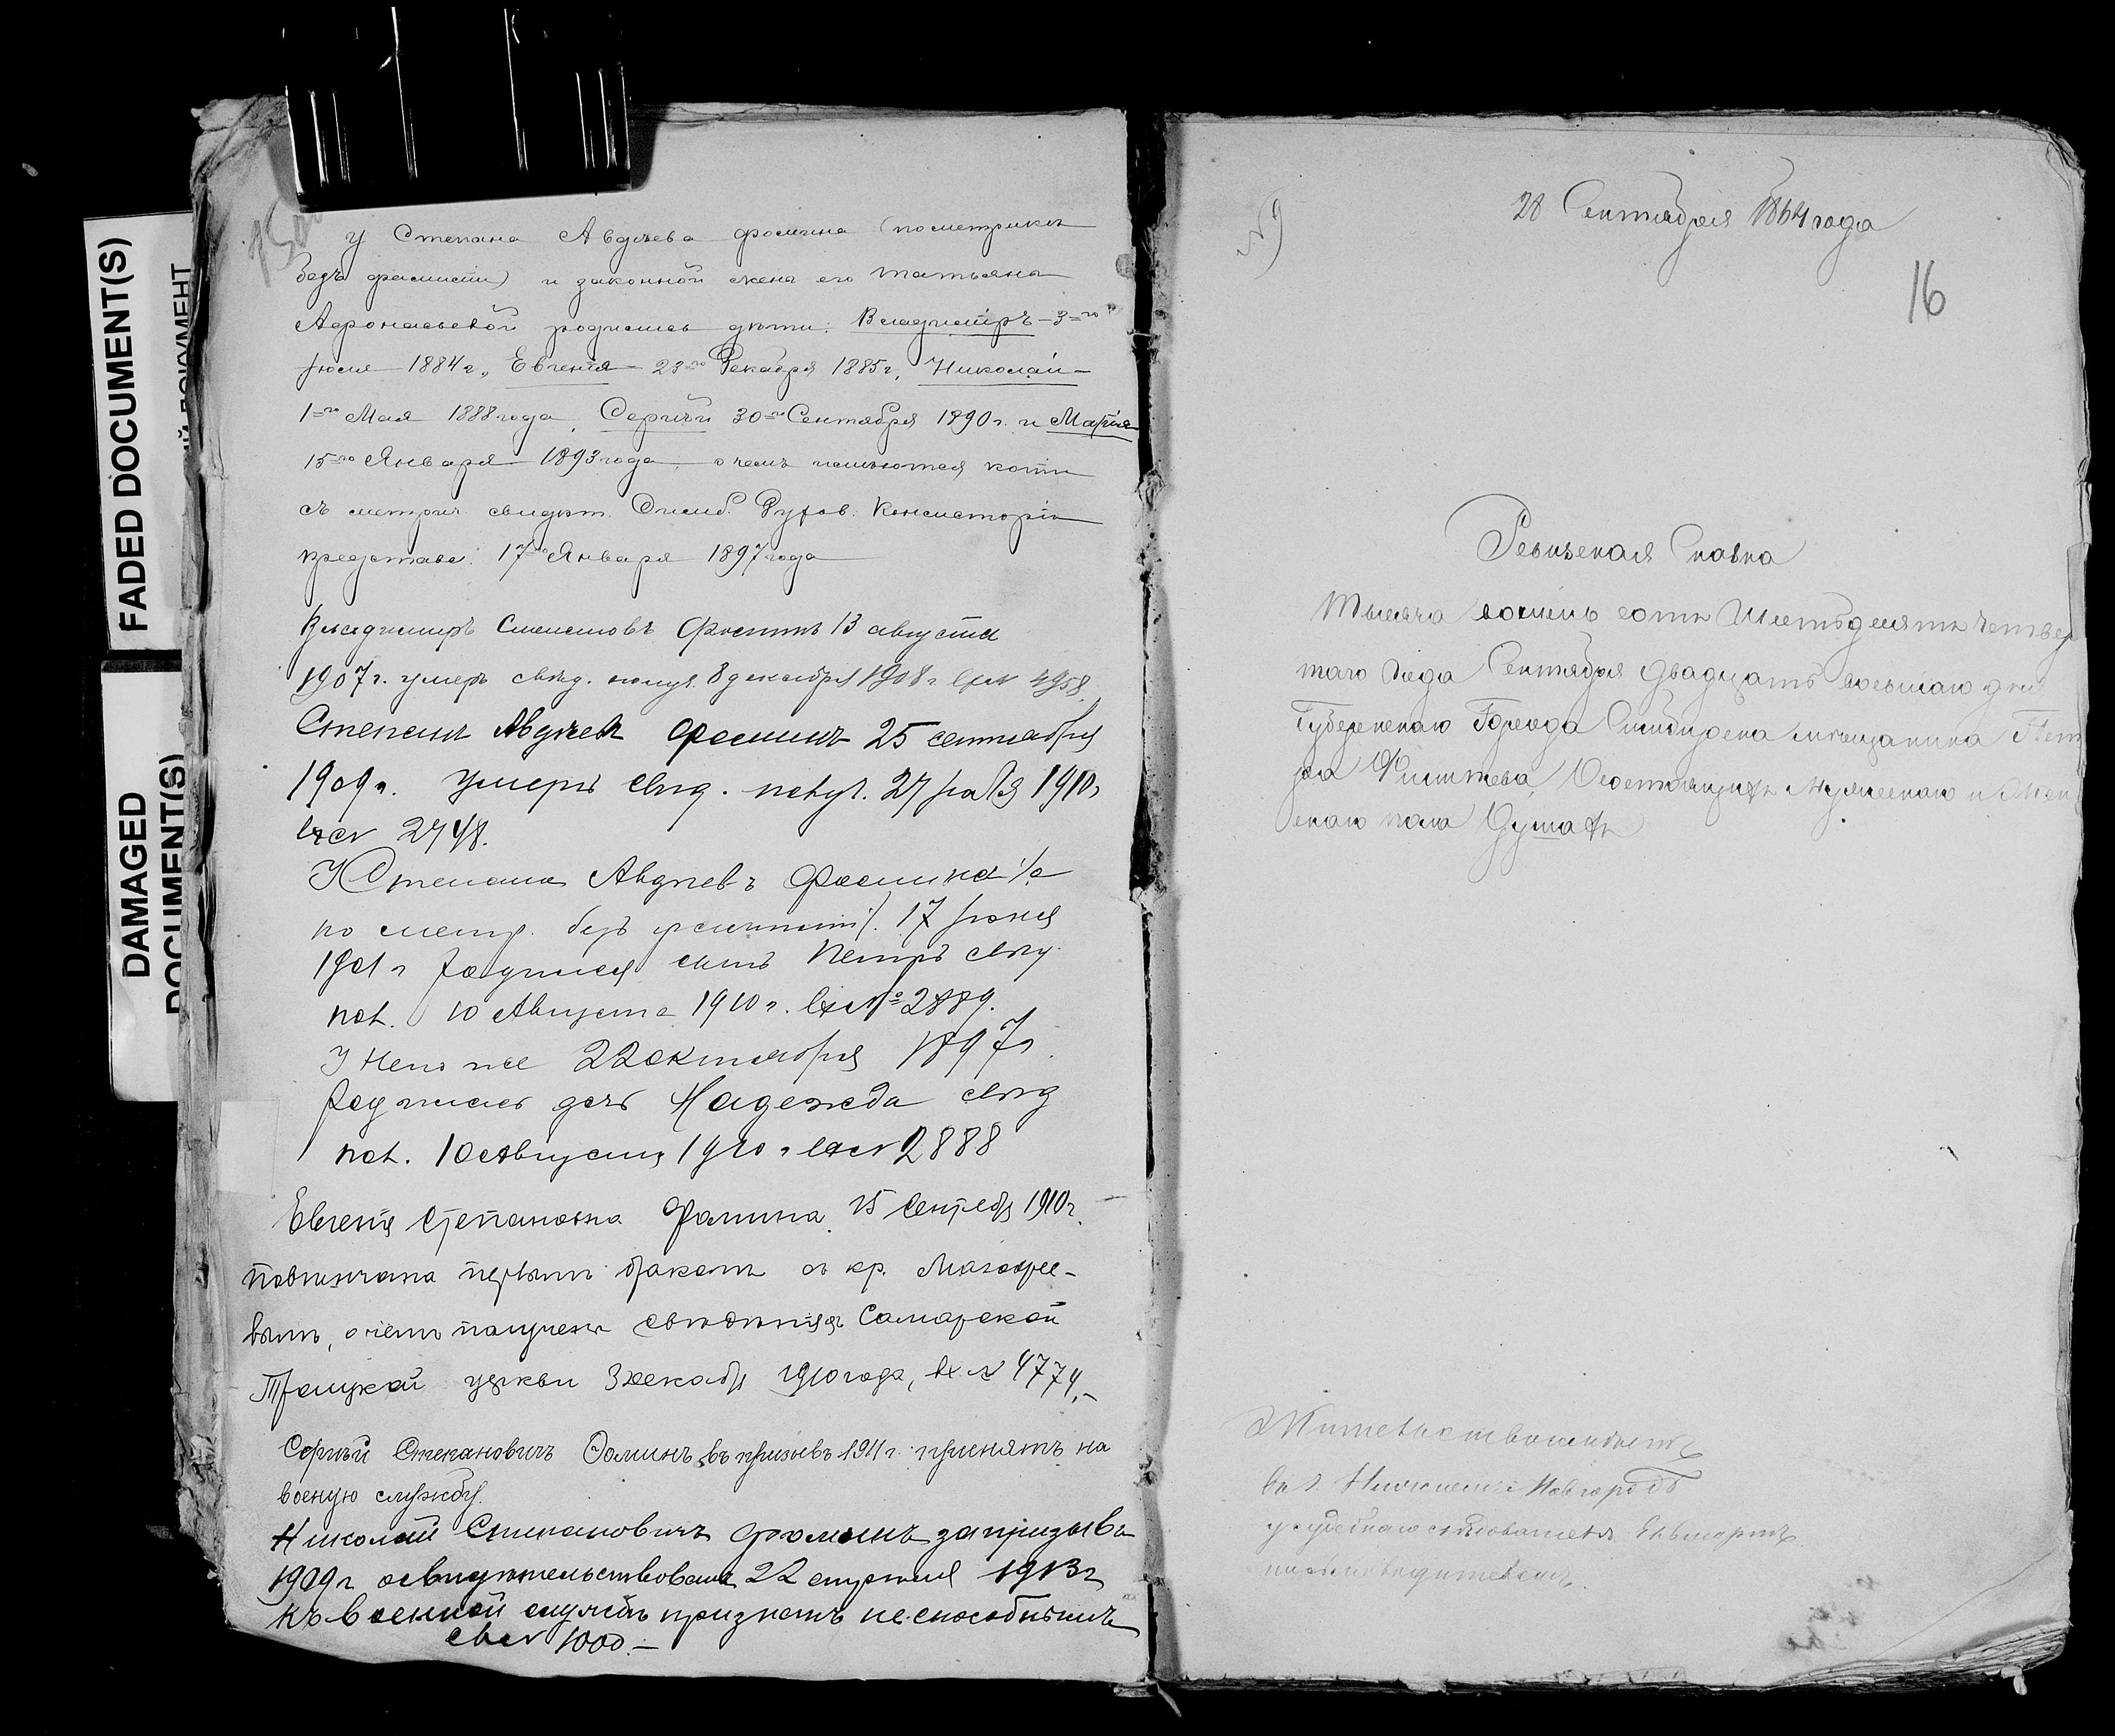 FADED DOCUMENT(S)
DAMAGED
DOCUMENT(S)
У Степана Авдѣева Фомина (по метрикѣ
безъ фамиліи) и законной жены его Татьяны
Афонасьевой родились дѣти: Владиміръ – 3го
Іюля 1884 г., Евгенія 23го Декабря 1885 г., Николай –
1го Мая 1888 года, Сергѣй 30го Сентября 1890 г. и Марія
15го Января 1893 года, о чемъ имѣются копіи
съ метрич. свидѣт. Симб. Духов. Консисторіи
представл. 17го Января 1897 года
Владимиръ Степановъ Фоминъ 13 августа
1907 г. умеръ свид. получ. 8 декабря 1908 г. вх № 4958
Степанъ Авдѣевъ Фоминъ 25 сентября
1909 г. умеръ свид. получ. 27 1910 г
вх № 2748.
У Степана Авдѣева Фомина /а
по метр. безъ фамиліи/. 17 Іюня
1901 г родился сынъ Петръ свид.
пол. 10 Августа 1910 г. вх № 2889.
У него же 22 октября 1897 г.
родилась дочь Надежда свид
пол. 10 Августа 1910 г вх № 2888
Евгенія Степановна Фомина 15 Сентября 1910 г.
повѣнчана первымъ бракомъ съ кр.
вымъ, о чемъ получено свѣдѣніе Самарской
Троицкой церкви 3 декабря 1910 года, вх. № 4774. –
Сергѣй Степановичъ Фоминъ въ призывъ 1911 г. принятъ на
военую службу.
Николай Степановичъ Фоминъ за призыва
1909 г освидѣтельствованъ 22 1913 г
къ военной службѣ признанъ неспособнымъ
св № 1000. –
№ 9
28 Сентября 1864 года
16
Ревизская Сказка
Тысяча восемь сотъ Шестьдесятъ четвер
таго Года Сентября двадцать восьмаго дня
Губернскаго Города Симбирска мѣщанина Пет
ра Филиппева, О состоящихъ мужескаго и Жен
скаго пола Душахъ
Жительство имѣетъ
въ г. Нижнемъ Новгородѣ
у судебнаго слѣдователя
письмоводителемъ.